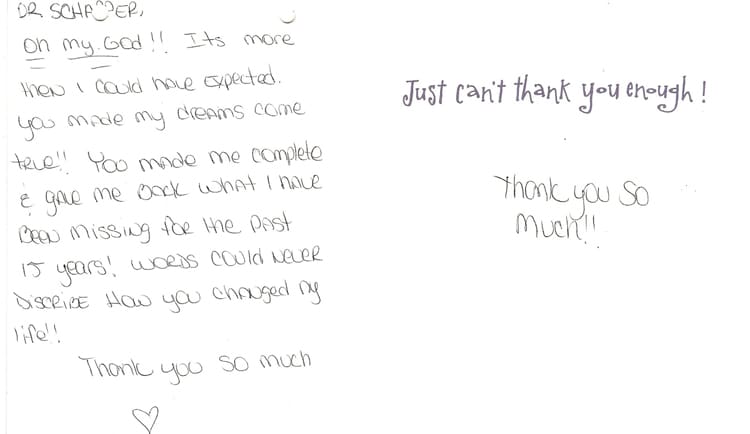 DR. SCHAFFER,
Oh my God!! Its more
then I could have expected.
You made my dreams come
true!! You made me complete
& gave me back what I have
been missing for the past
15 years! Words could never
discribe how you changed my
life!!
Thank you so much
Just can't thank you enough!
Thank you so
much!!